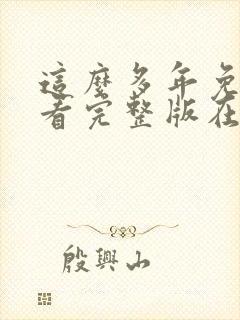 這麼多年免
看完整版在
殷興山